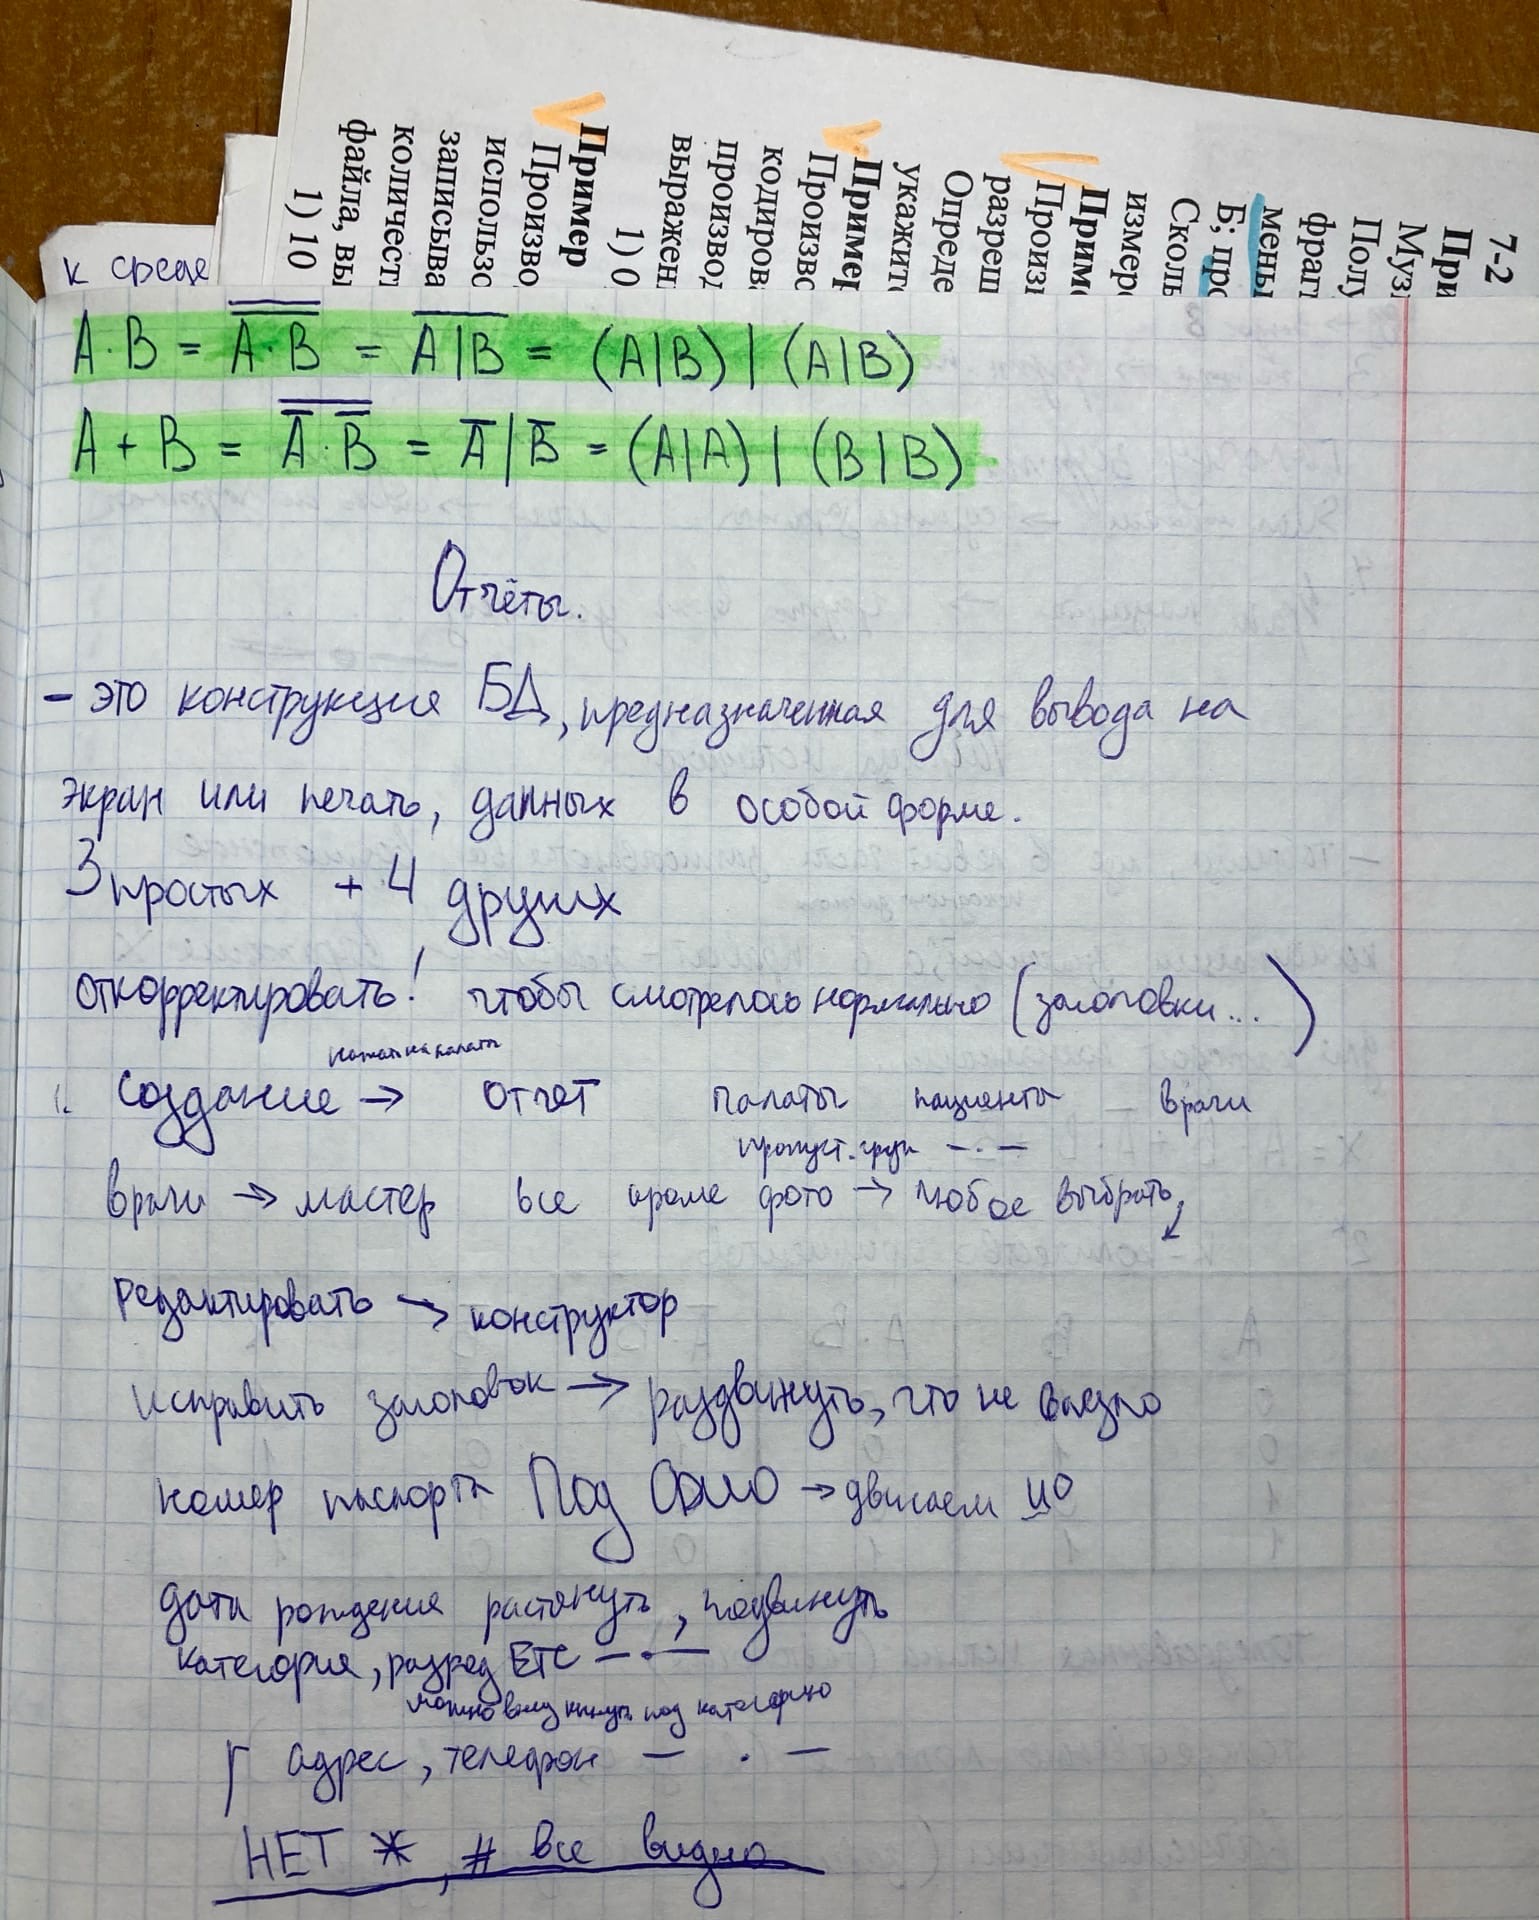 7-2
При
Муз
Полу
фраг
мены
Б; про
Сколь
измер
Приме
Произв
разреш
Опреде
укажит
Пример
Произво
кодиров
производ
выражен
1) 0
Пример
Произво
использо
записыва
количест
файла, вы
1) 10
к среде
A·B = \overline{\overline{A·B}} = \overline{A|B} = (A|B) | (A|B)
A+B = \overline{\overline{A}·\overline{B}} = \overline{A}|\overline{B} = (A|A) | (B|B)
Отчёты.
– это конструкция БД, предназначенная для вывода на
экран или печать, данных в особой форме.
3 простых + 4 других
откорректировать! чтобы смотрелось нормально (заголовки...)
нажать на палаты
1. Создание → отчет палаты пациенты – врачи
пропуст. груп –·–
врачи → мастер все кроме фото → любое выбрать ↓
Редактировать → конструктор
исправить заголовок → раздвинуть, что не видно
номер паспорта Под ФИО → двигаем
дата рождения растянуть, подвинуть
категория, разряд ETC –·–
можно вниз кинуть под категорию
адрес, телефон – · –
НЕТ *, # все видно